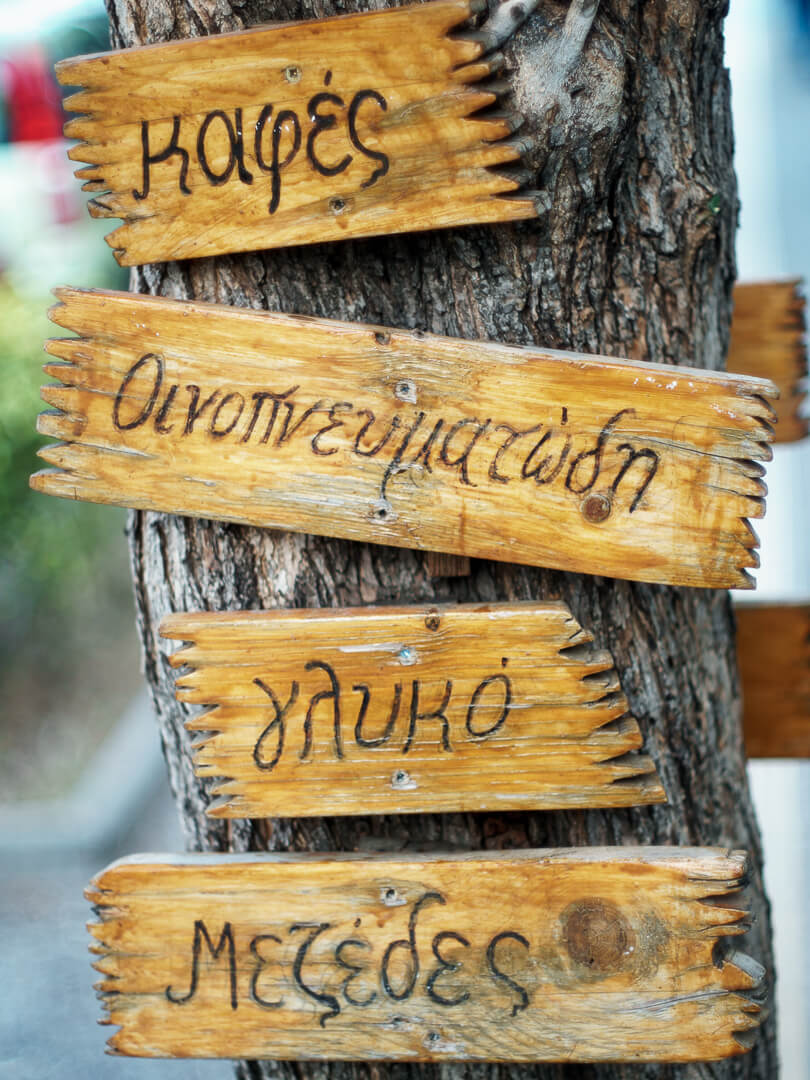 καφές
Οινοπνευματώδη
γλυκό
Μεζέδες